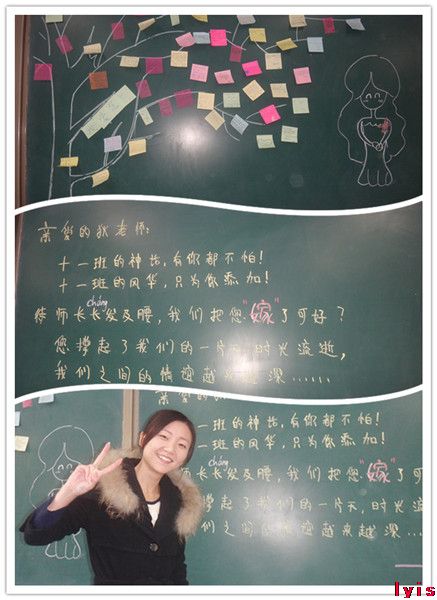 亲爱的老师:
十一班的神话,有你都不怕!
十一班的风华,只为你添加!
cháng
待师长长发及腰,我们把您"嫁"了可好?
您撑起了我们的一片天,时光流逝,
我们之间的情谊越来越深……
亲爱的
一班的神话,有你都不怕!
一班的风华,只为你添加!
cháng
师长长发及腰,我们把您"嫁"了可
撑起了我们的一片天,时光流
们之间的情谊越来越深……
lyis